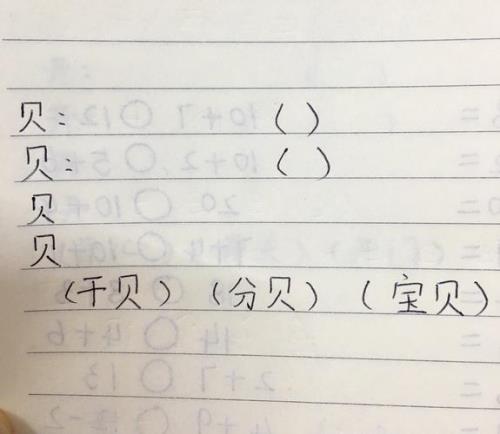 贝: ()
贝: ()
贝
贝
(干贝) (分贝) (宝贝)